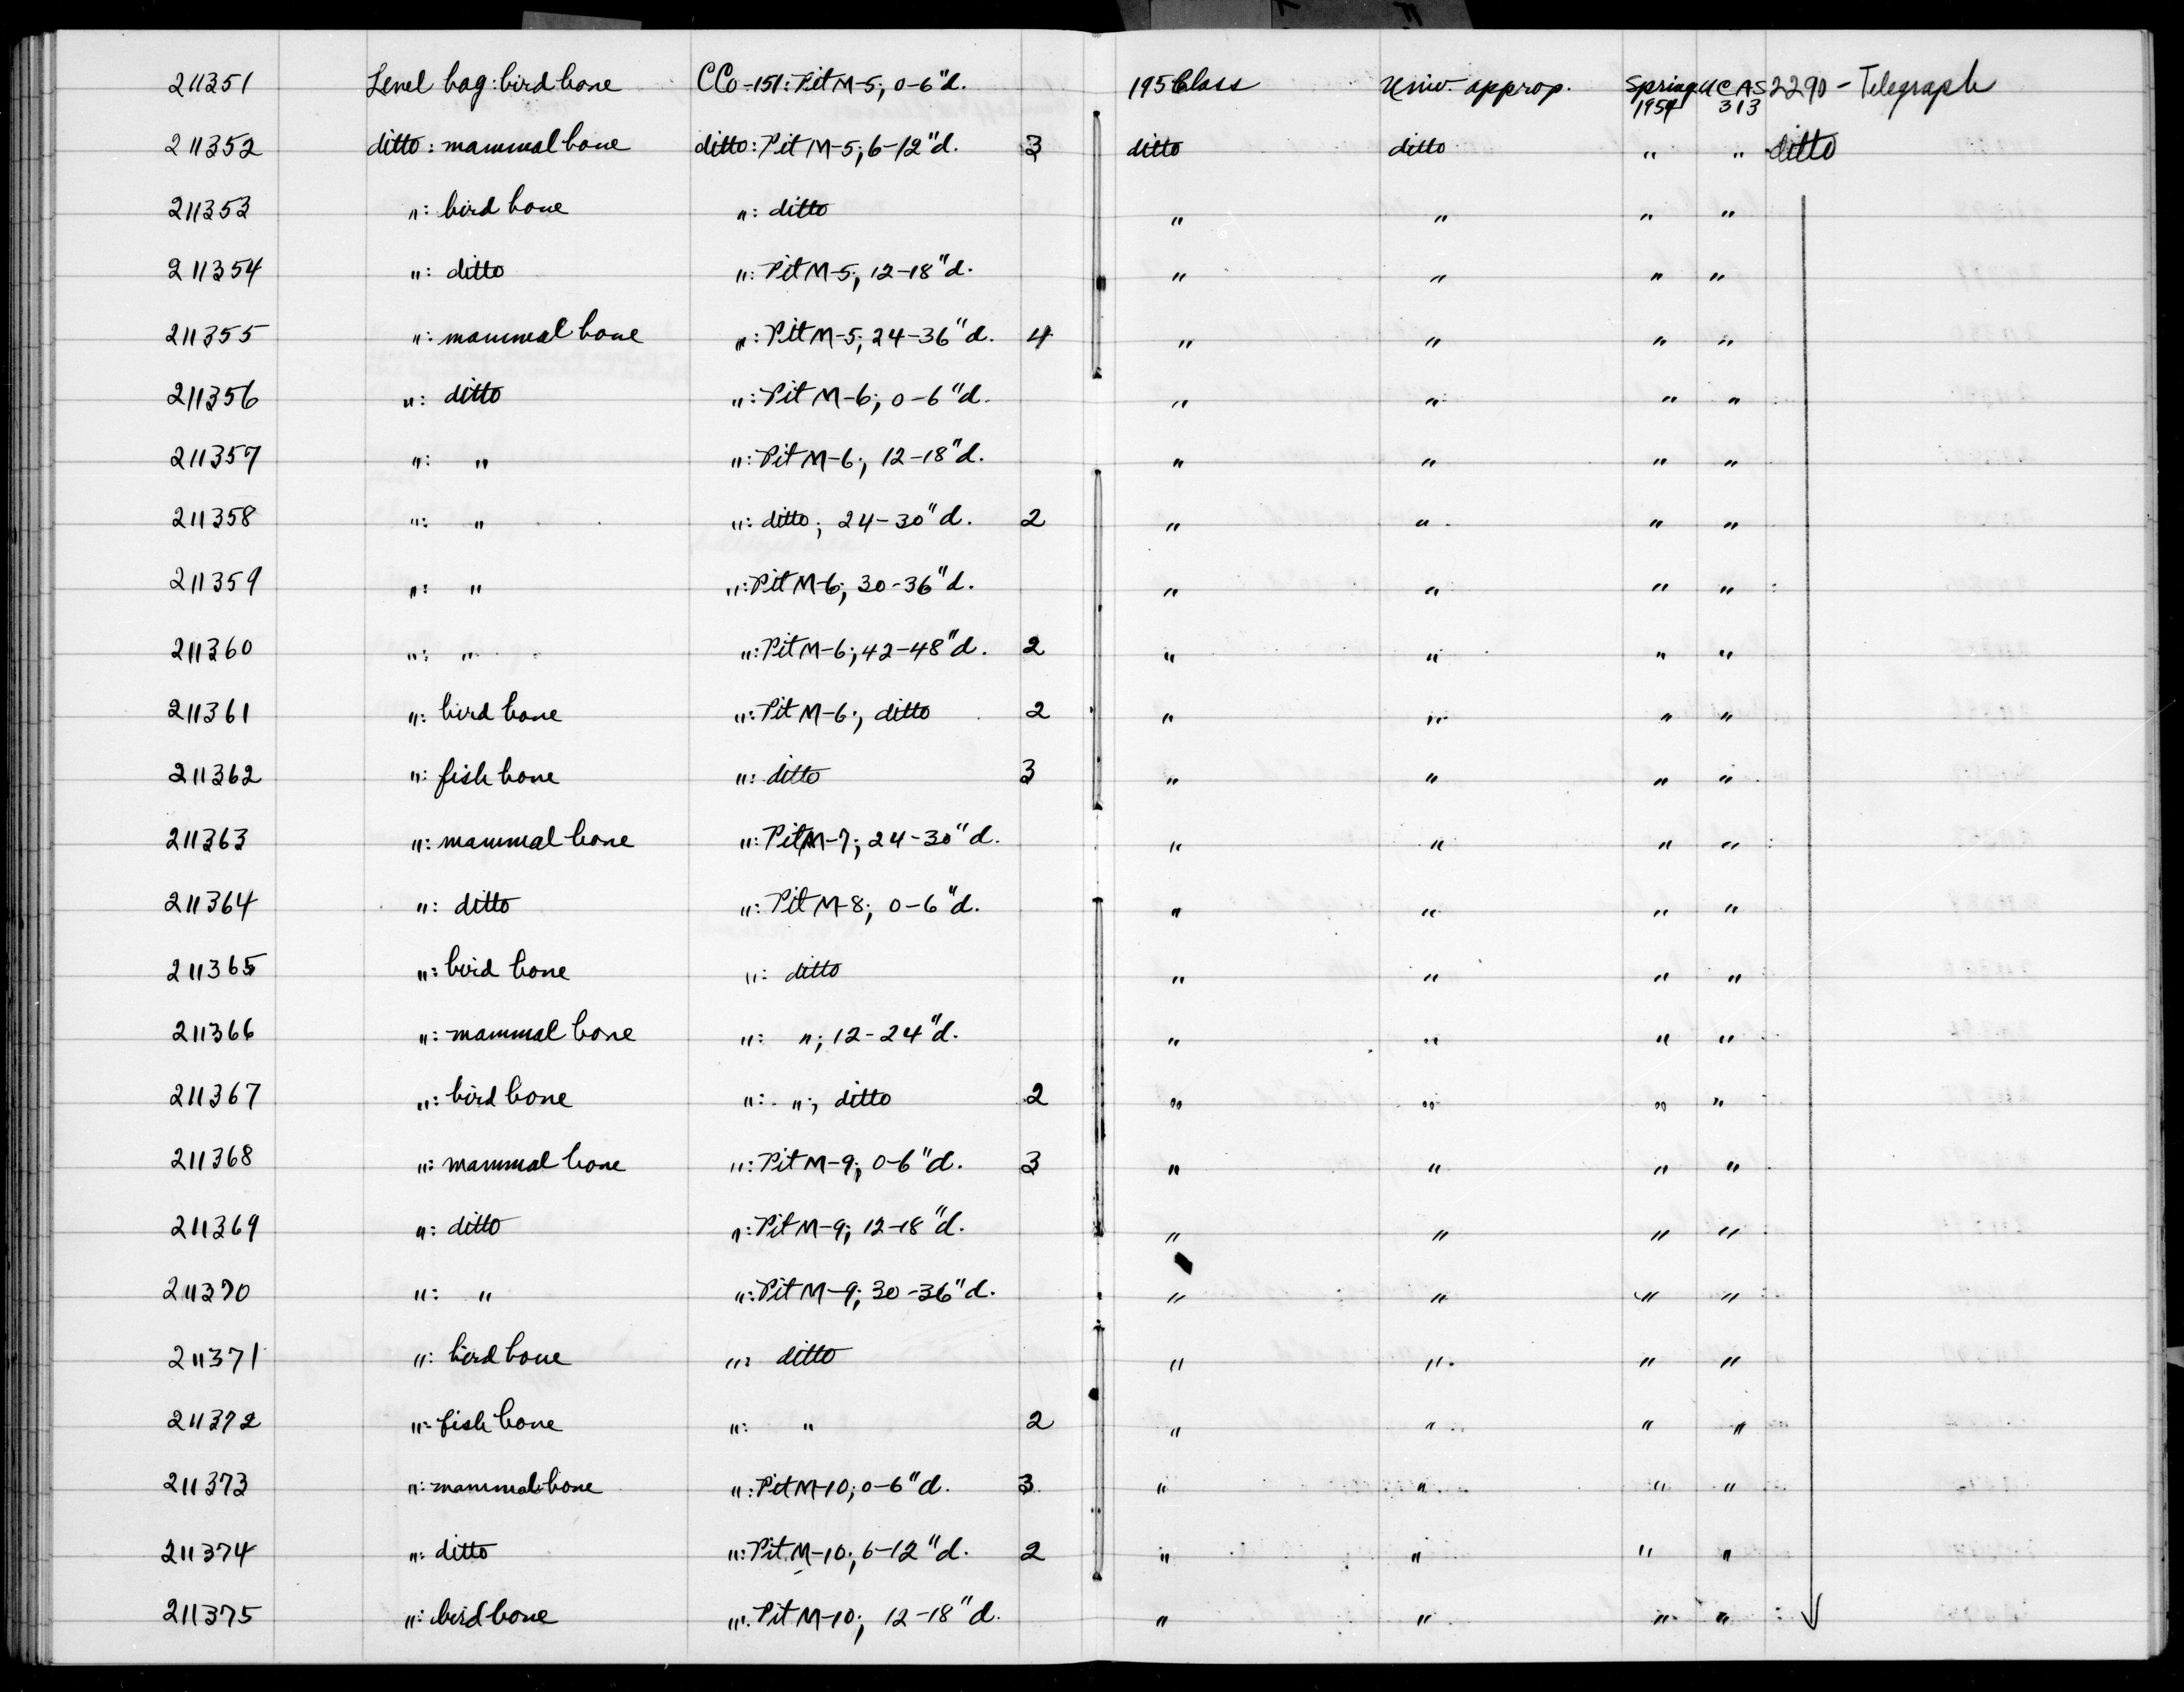 211351 Level bag: bird bone CCo-151: Pit M-5; 0-6"d. 195 Class Univ. approp. Spring 1954 UCAS 313 2290 - Telegraph
211352 ditto: mammal bone ditto: Pit M-5; 6-12"d. 3 ditto ditto " " ditto
211353 ": bird bone ": ditto " " " "
211354 ": ditto ": Pit M-5; 12-18"d. " " " "
211355 ": mammal bone ": Pit M-5; 24-36"d. 4 " " " "
211356 ": ditto ": Pit M-6; 0-6"d. " " " "
211357 ": " ": Pit M-6; 12-18"d. " " " "
211358 ": " ": ditto; 24-30"d. 2 " " " "
211359 ": " ": Pit M-6; 30-36"d. " " " "
211360 ": " ": Pit M-6; 42-48"d. 2 " " " "
211361 ": bird bone ": Pit M-6; ditto 2 " " " "
211362 ": fish bone ": ditto 3 " " " "
211363 ": mammal bone ": Pit M-7; 24-30"d. " " " "
211364 ": ditto ": Pit M-8; 0-6"d. " " " "
211365 ": bird bone ": ditto " " " "
211366 ": mammal bone ": "; 12-24"d. " " " "
211367 ": bird bone ": "; ditto 2 " " " "
211368 ": mammal bone ": Pit M-9; 0-6"d. 3 " " " "
211369 ": ditto ": Pit M-9; 12-18"d. " " " "
211370 ": " ": Pit M-9; 30-36"d. " " " "
211371 ": bird bone ": ditto " " " "
211372 ": fish bone ": " 2 " " " "
211373 ": mammal bone ": Pit M-10; 0-6"d. 3 " " " "
211374 ": ditto ": Pit M-10; 6-12"d. 2 " " " "
211375 ": bird bone ": Pit M-10; 12-18"d. " " " "